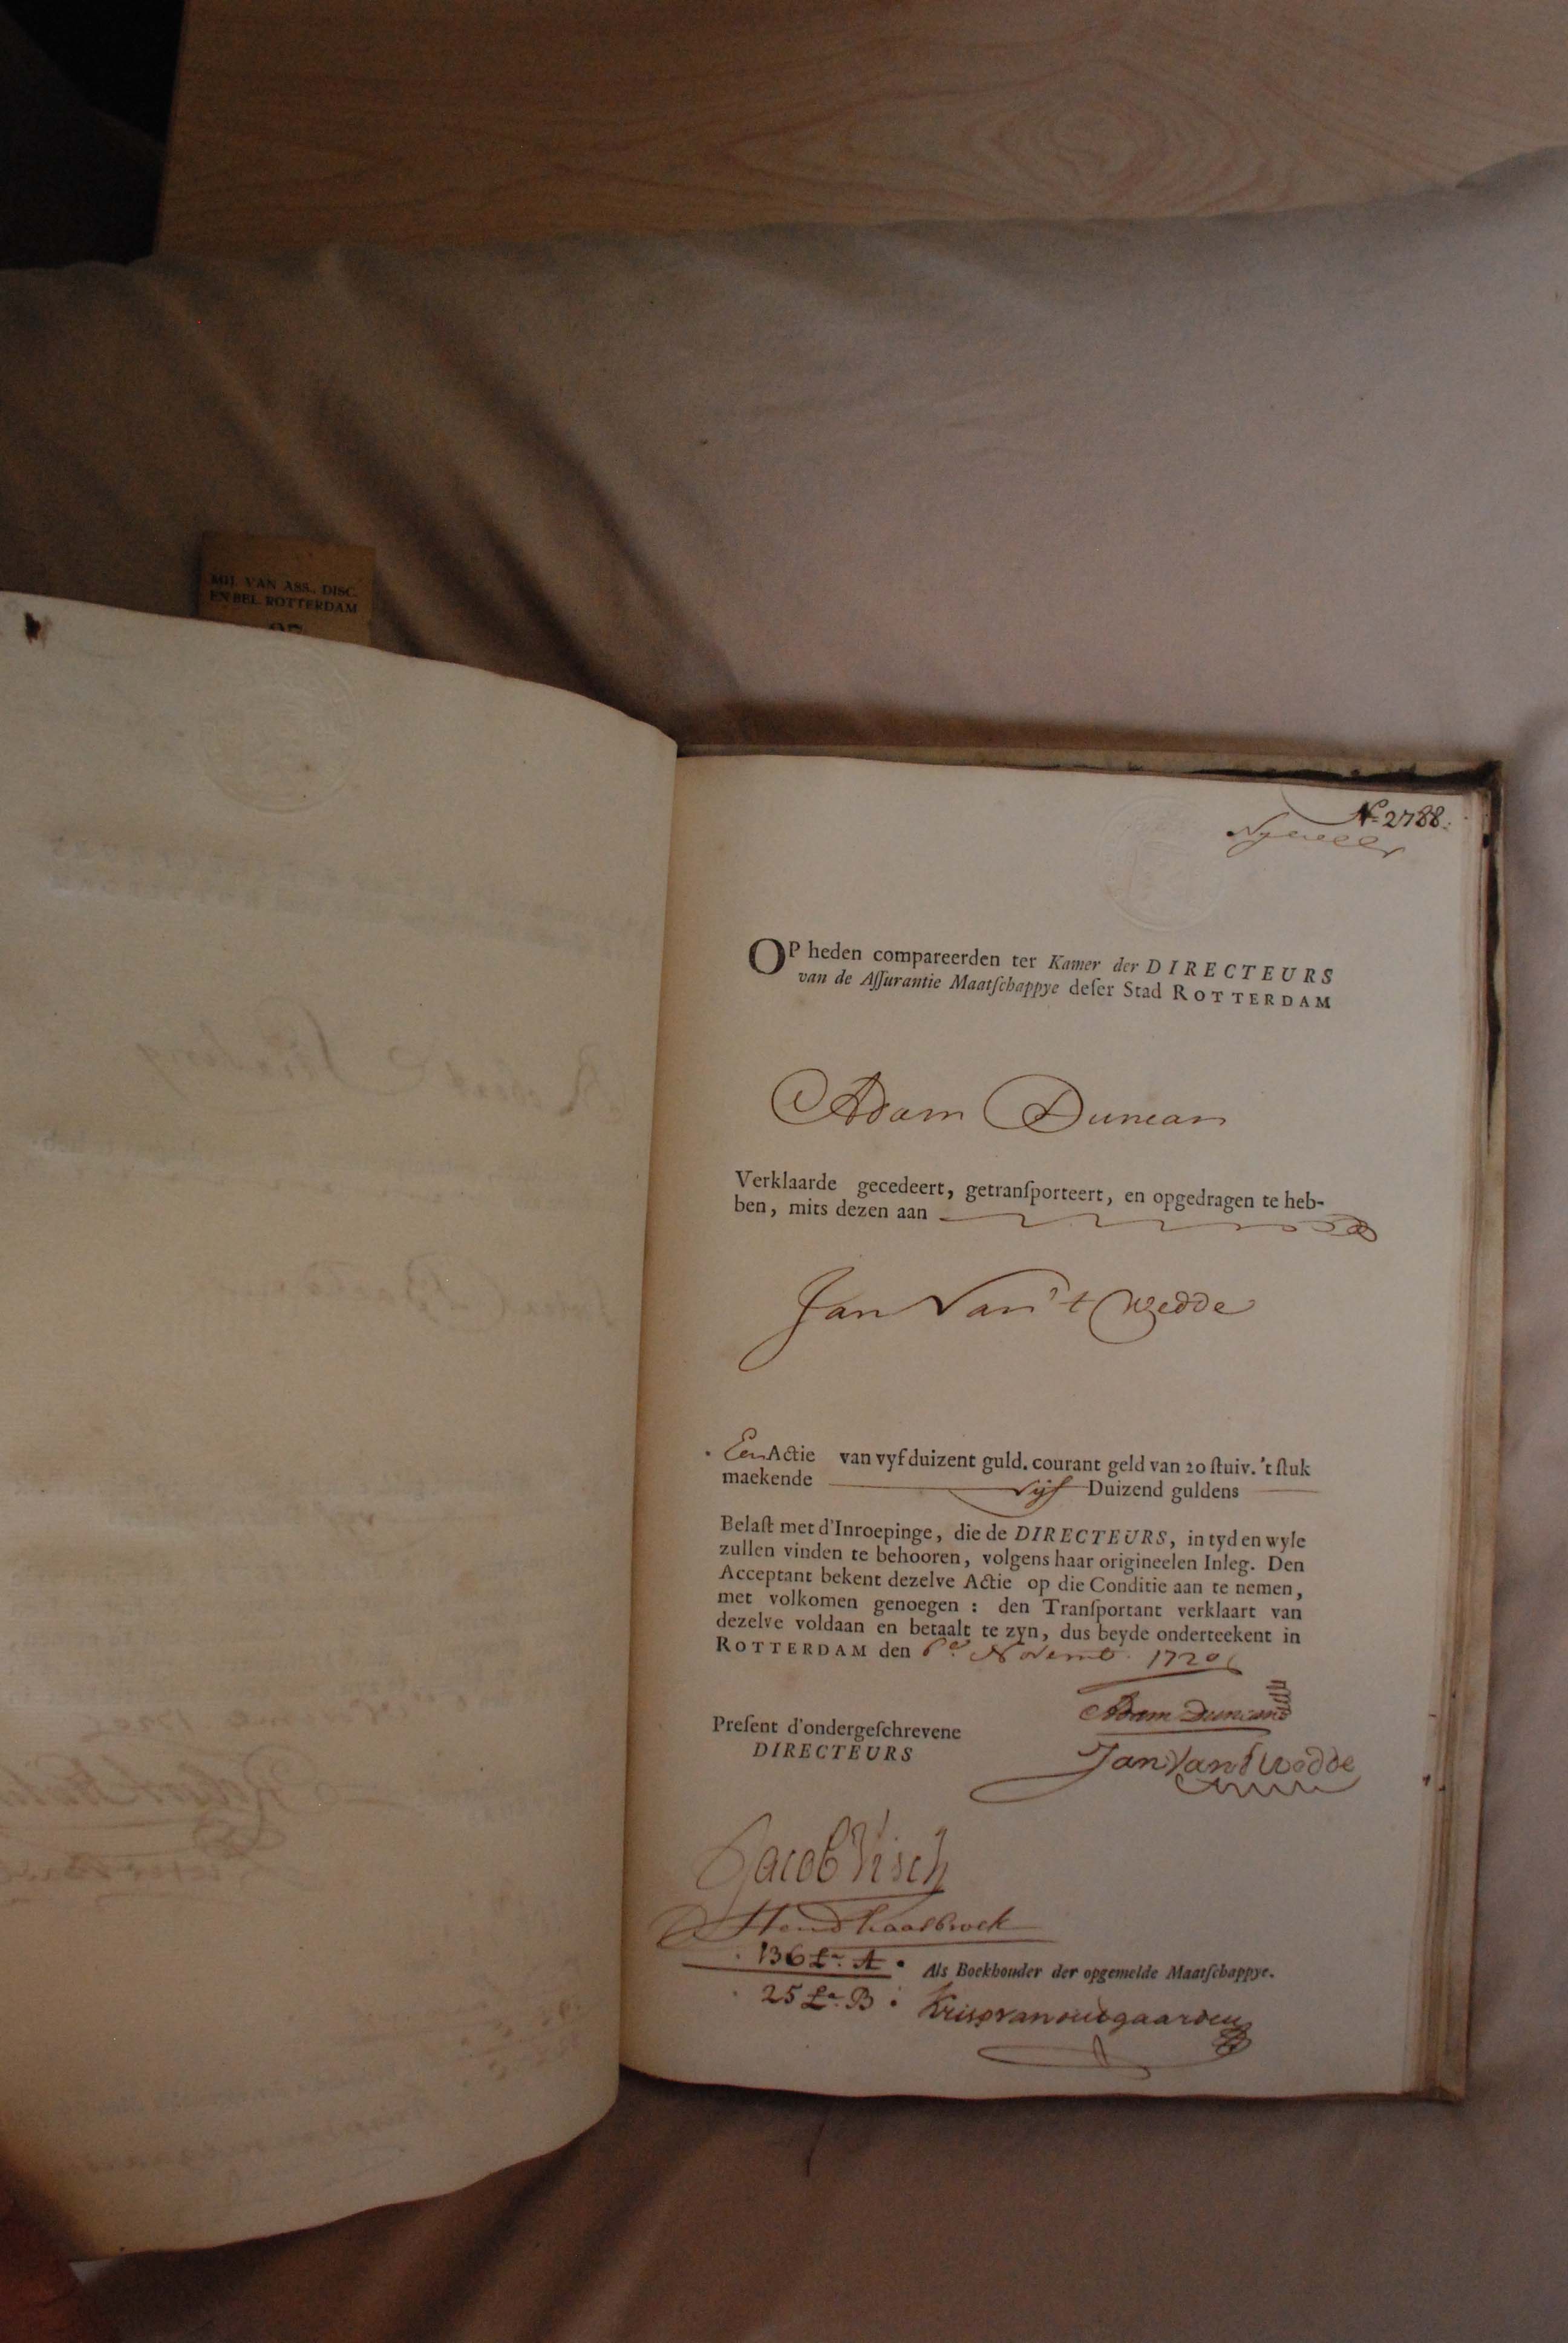 MIJ. VAN ASS., DISC.
EN BEL. ROTTERDAM
No 2788.
OP heden compareerden ter Kamer der DIRECTEURS
van de Aſſurantie Maatſchappye deſer Stad ROTTERDAM
Adam Duncan
Verklaarde gecedeert, getranſporteert, en opgedragen te heb-
ben, mits dezen aan
Jan Van't Wedde
Een Actie van vyf duizent guld. courant geld van 20 ſtuiv. 't ſtuk
maekende Vijf Duizend guldens
Belaſt met d'Inroepinge, die de DIRECTEURS, in tyd en wyle
zullen vinden te behooren, volgens haar origineelen Inleg. Den
Acceptant bekent dezelve Actie op die Conditie aan te nemen,
met volkomen genoegen : den Tranſportant verklaart van
dezelve voldaan en betaalt te zyn, dus beyde onderteekent in
ROTTERDAM den 6e Novemb. 1720
Adam Duncan
Preſent d'ondergeſchrevene
DIRECTEURS
Jan Van't Wedde
Jacob Visch
Hend haasbroek
136 La. A
Als Boekhouder der opgemelde Maatſchappye.
25 La. B